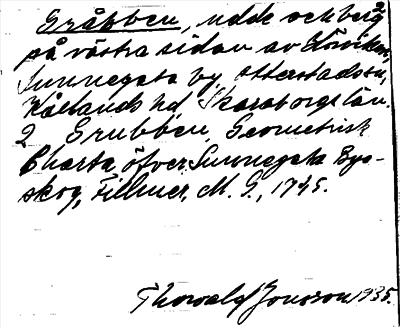 Gråbben, udde och berg
på västra sidan av Körviken,
Sunnegata by, Otterstads sn,
Kållands hd, Skaraborgs län.
2 Grubben, Geometrisk
Charta öfver Sunnegata Bys-
skog, Fillmer, M. G., 1795.
Thorvald Jonsson 1935.